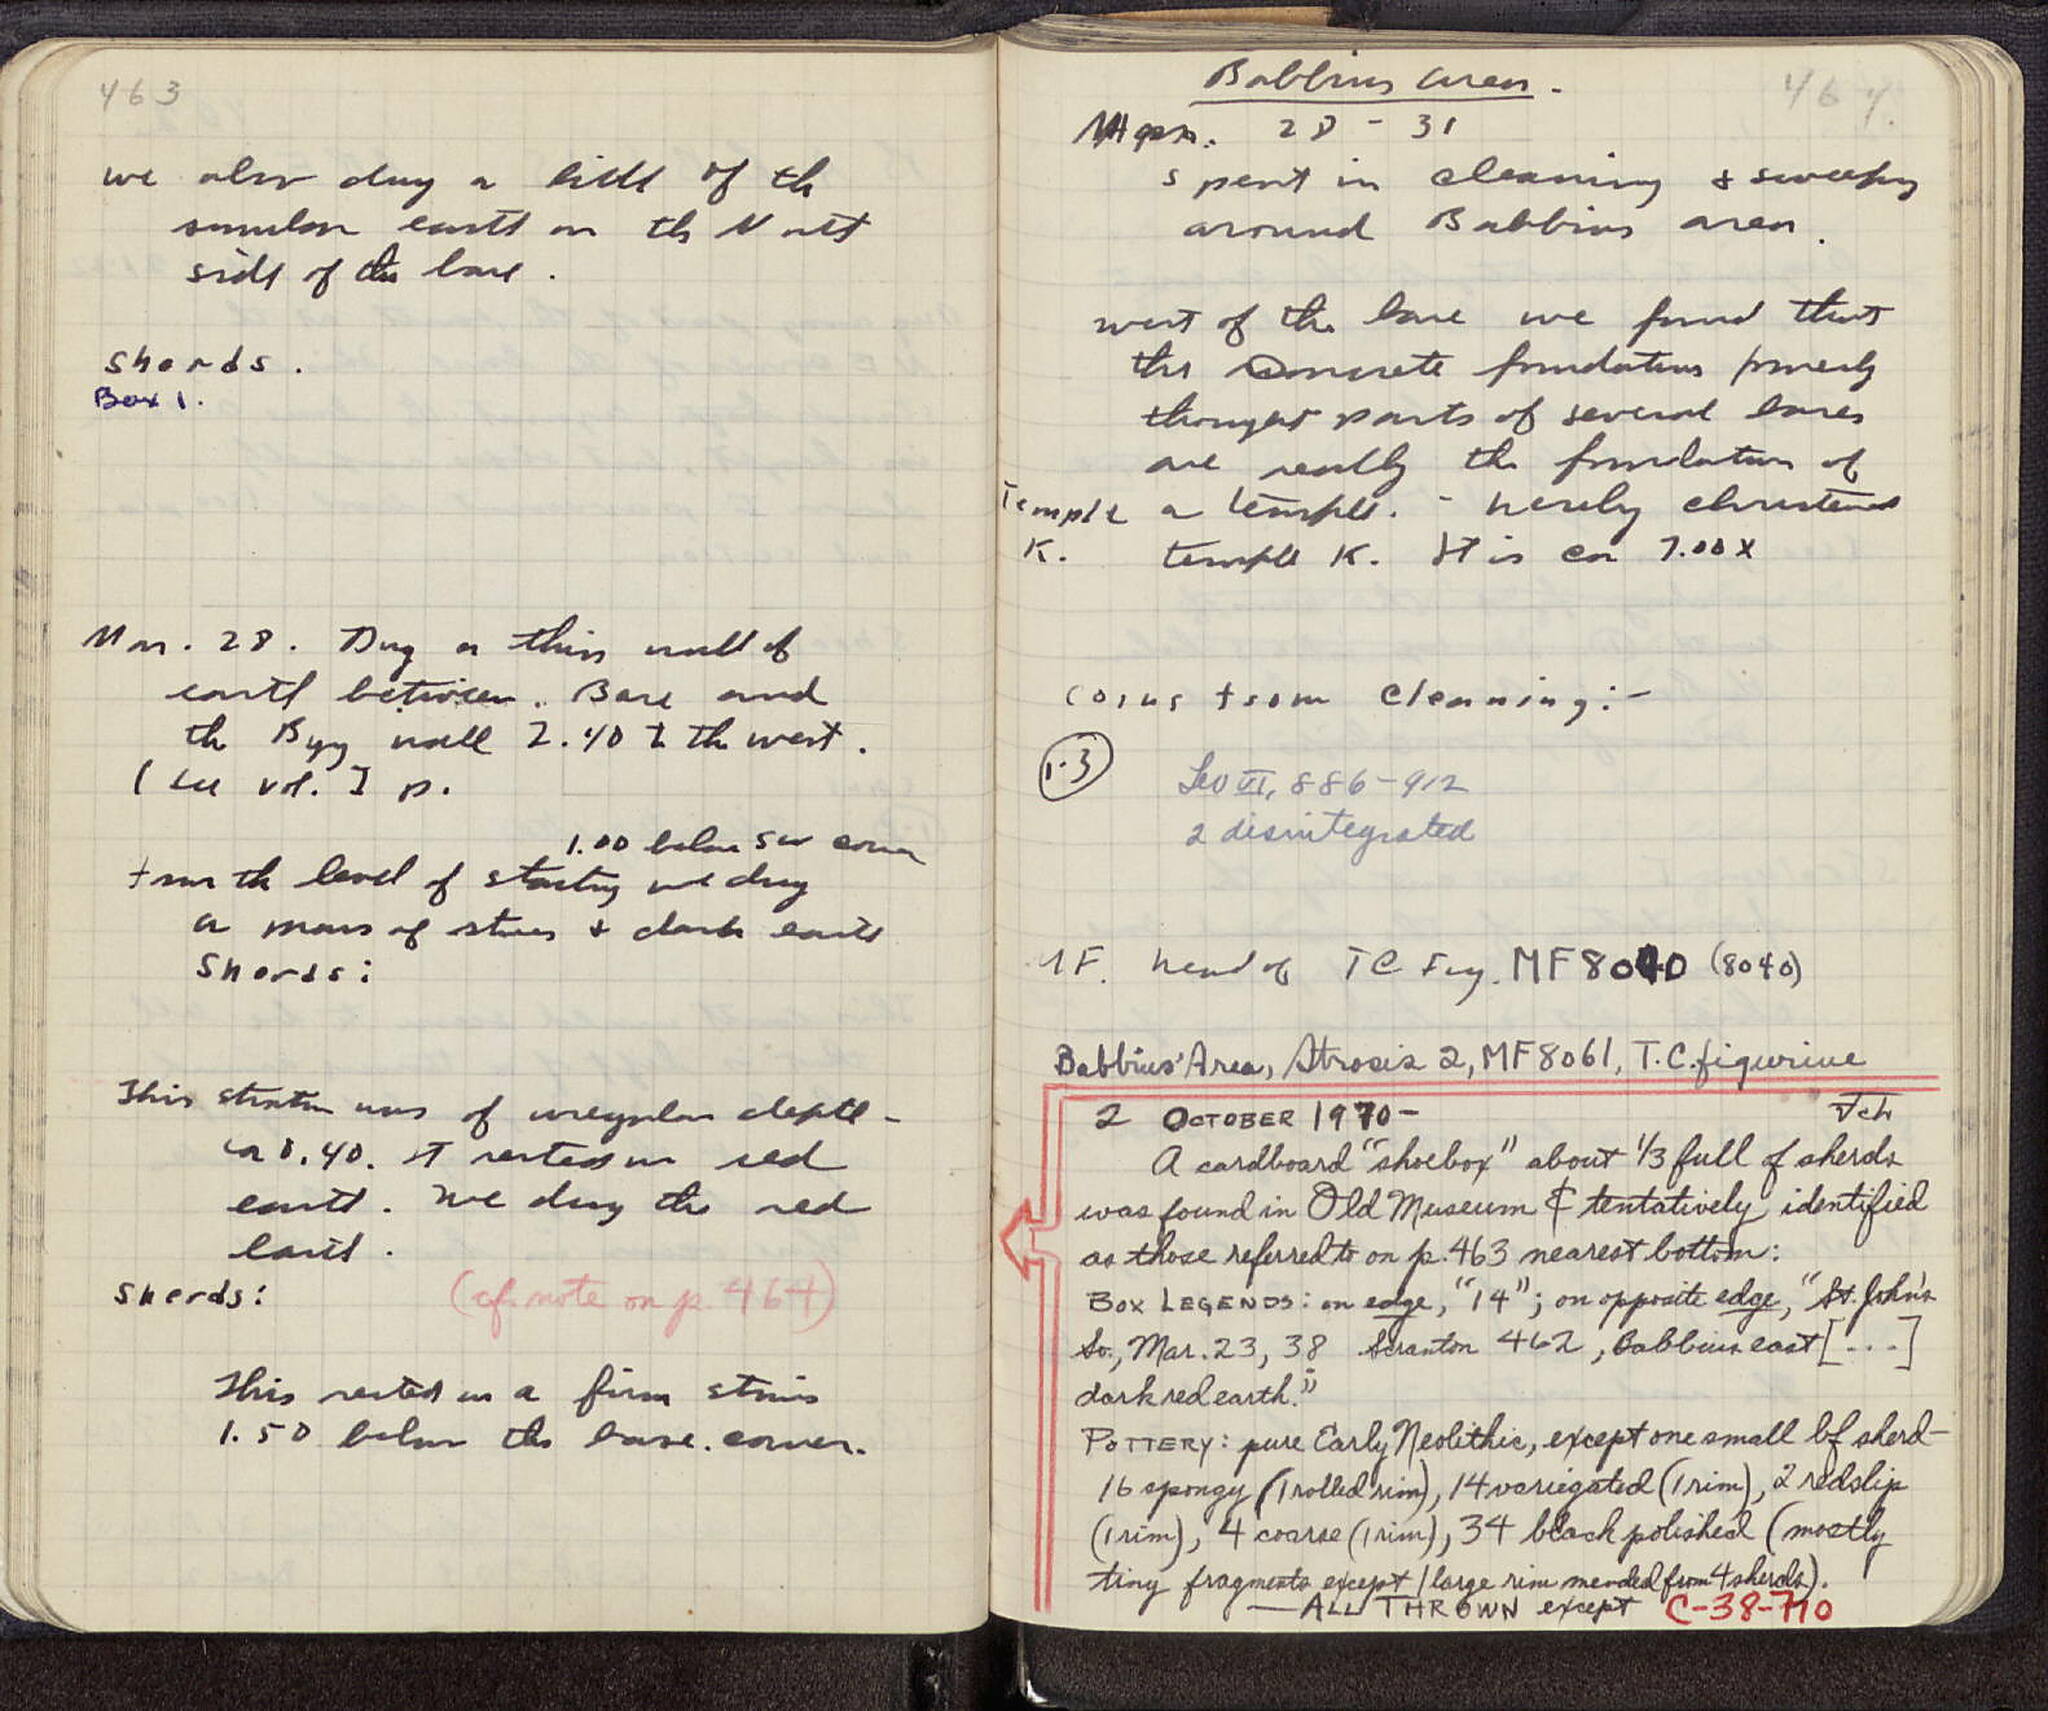 463
we also dug a little of the
similar earth on the North
side of the base.
Sherds.
Box 1.
Mar. 28. Dug a thin wall of
earth between Base and
the Byz wall 2.40 to the west.
(see vol. I p.
1.00 below SW corner
From the level of starting we dug
a mass of stones & dark earth
Sherds:
This stratum was of irregular depth -
ca 0.40. It rested on red
earth. We dug the red
earth.
Sherds: (cf. note on p. 464)
This rested on a firm
1.50 below the base corner.
Babbius Area.
464.
28 - 31
spent in cleaning & sweeping
around Babbius area.
West of the base we found that
the concrete foundations formerly
thought parts of several bases
are really the foundation of
Temple a temple. - hereby christened
K. temple K. It is ca 7.00 x
Coins from Cleaning:-
1-3 Leo VI, 886-912
2 disintegrated
1F. head of TC Fig. MF8040 (8040)
Babbius' Area, Strosis 2, MF8061, T.C. figurine
2 OCTOBER 1970-
A cardboard "shoebox" about 1/3 full of sherds
was found in Old Museum & tentatively identified
as those referred to on p. 463 nearest bottom:
BOX LEGENDS: on edge, "14"; on opposite edge, "St. John's
So., Mar. 23, 38 Scranton 462, Babbius east [...]
dark red earth."
POTTERY: pure Early Neolithic, except one small bf sherd-
16 spongy (1 rolled rim), 14 variegated (1 rim), 2 redslip
(1 rim), 4 coarse (1 rim), 34 black polished (mostly
tiny fragments except 1 large rim mended from 4 sherds).
—ALL THROWN except C-38-710